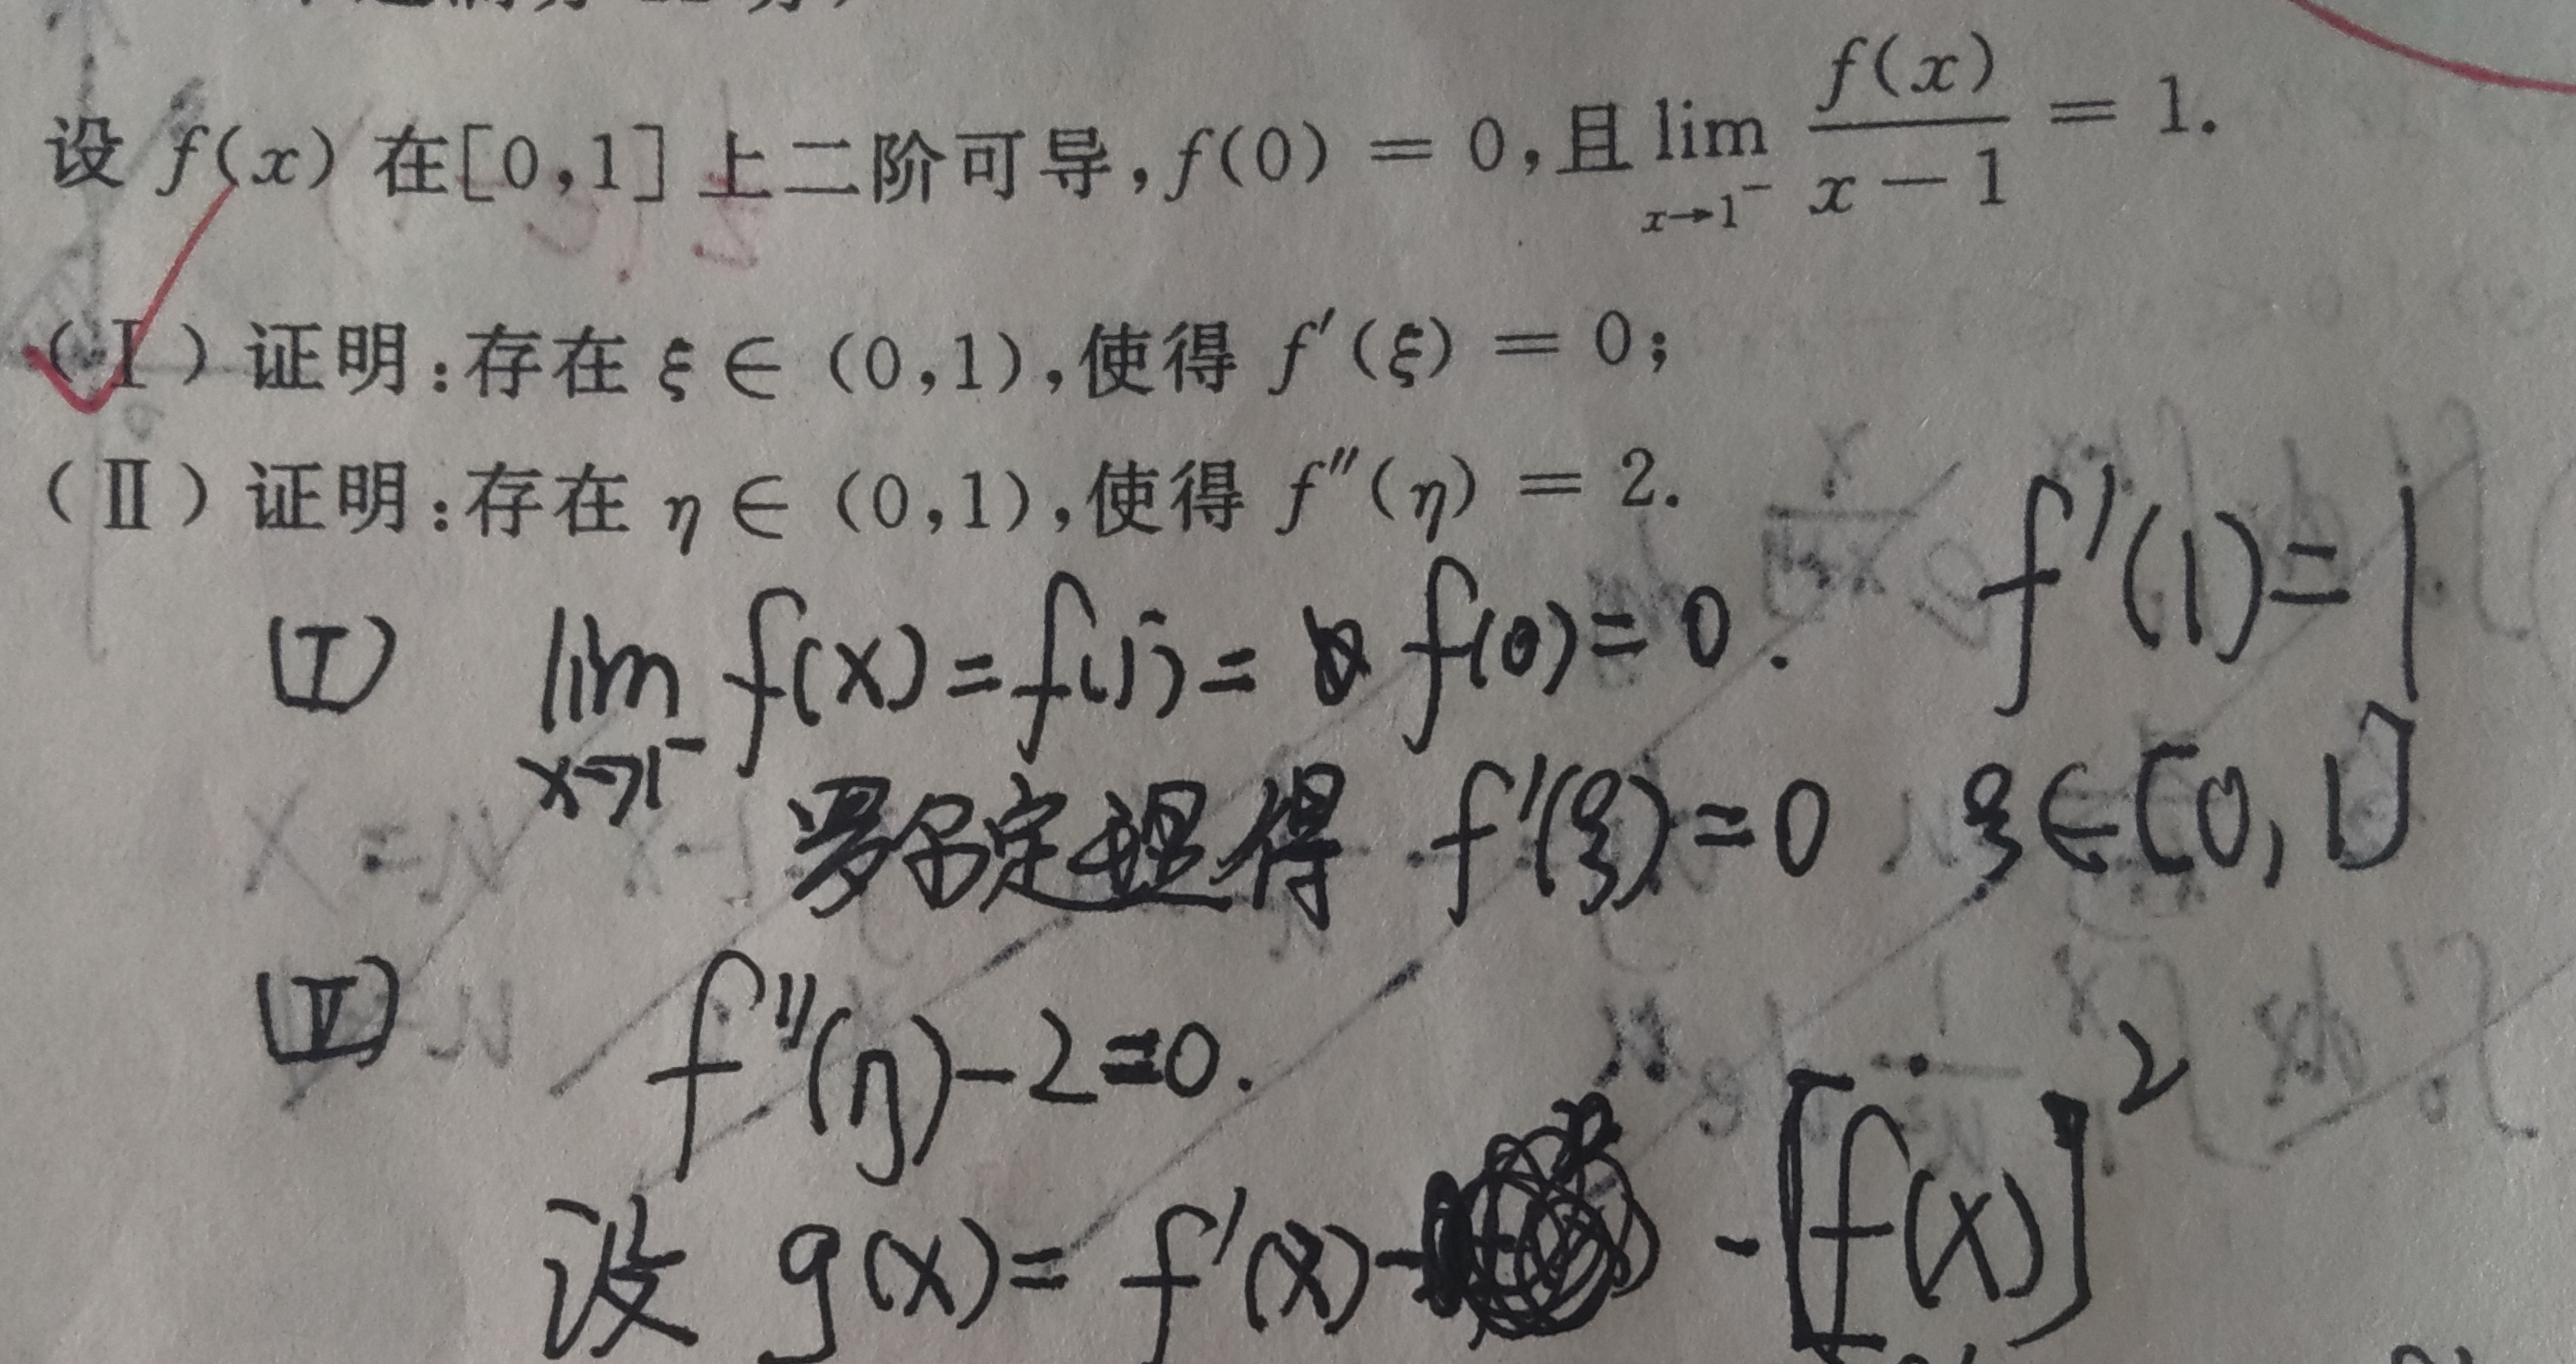 设 f(x) 在[0,1] 上二阶可导,f(0) = 0,且 lim_{x→1⁻} f(x)/(x-1) = 1.
(Ⅰ) 证明:存在 ξ ∈ (0,1),使得 f′(ξ) = 0;
(Ⅱ) 证明:存在 η ∈ (0,1),使得 f″(η) = 2.
f′(1)=1
(Ⅰ) lim_{x→1⁻} f(x)=f(1⁻)= f(0)=0.
罗尔定理得 f′(ξ)=0 ξ∈[0,1]
(Ⅱ) f″(η)-2=0.
设 g(x)= f′(x)- -[f(x)]²